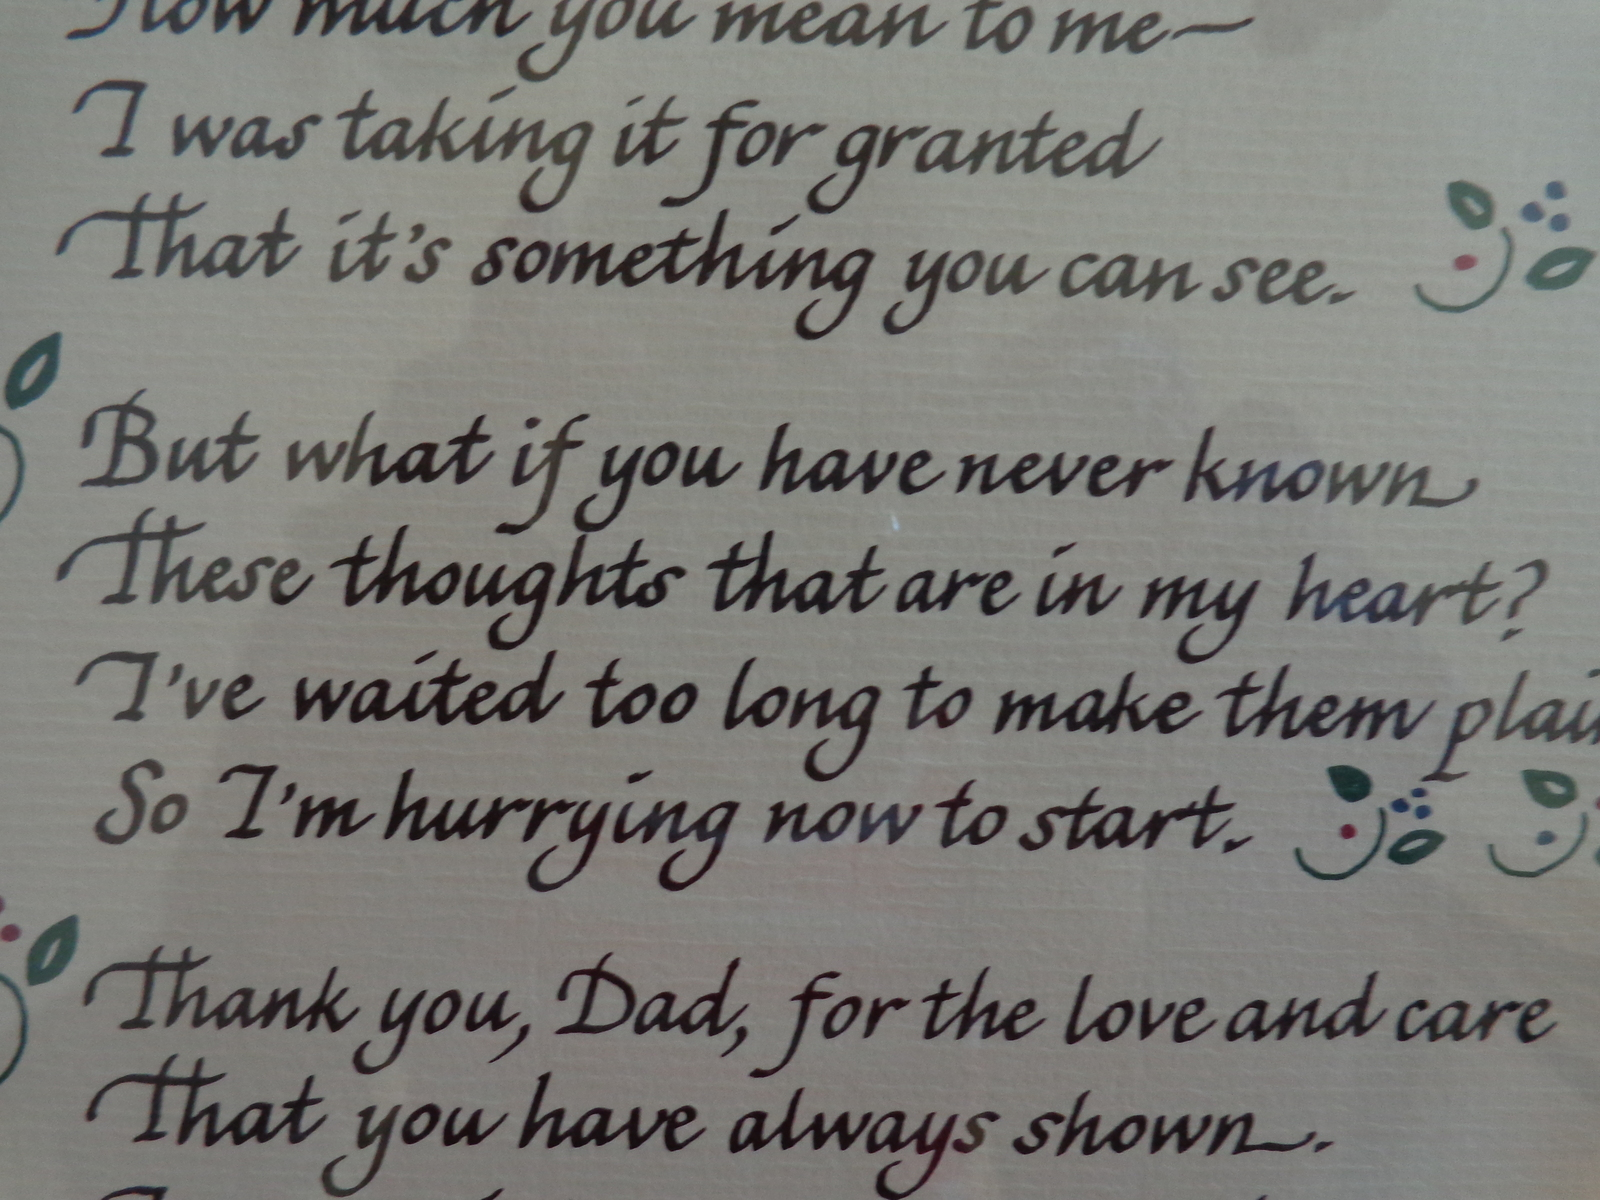 How much you mean to me—
I was taking it for granted
That it's something you can see.
But what if you have never known
These thoughts that are in my heart?
I've waited too long to make them
So I'm hurrying now to start.
Thank you, Dad, for the love and care
That you have always shown.